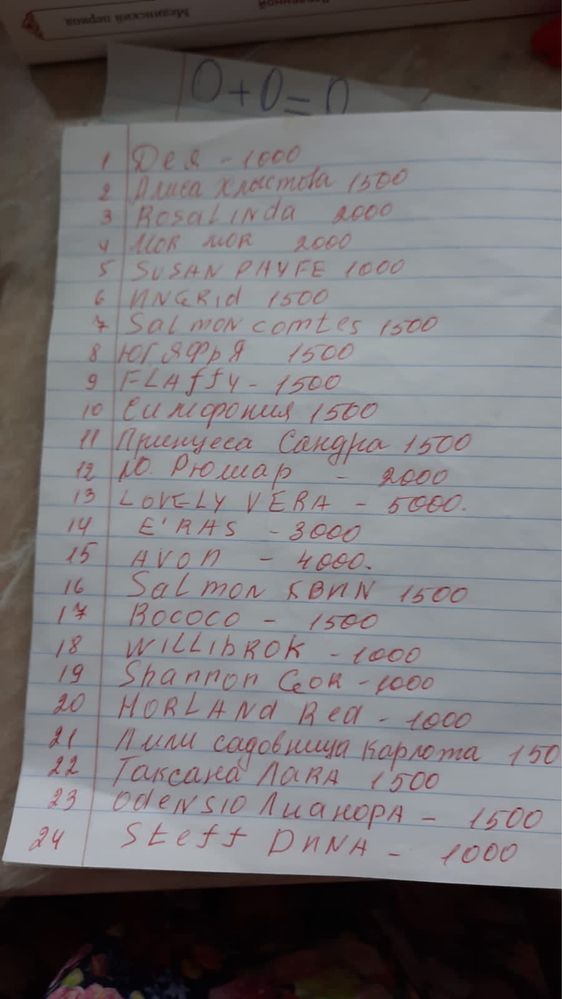 Медицинский
O+O=O
1 Дея - 1000
2 Алиса Хлыстова 1500
3 ROSALINda 2000
4 МОR МОR 2000
5 SUSAN PAYFE 1000
6 ИNGRid 1500
7 Salmon comtes 1500
8 ЮГЯФЬЯ 1500
9 FLAffy - 1500
10 Симфония 1500
11 Принцеса Сандра 1500
12 Ю. Рюмар - 2000
13 LOVELY VERA - 5000.
14 E'RAS - 3000
15 AVON - 4000.
16 Salmon КВИN 1500
17 ROCOCO - 1500
18 WILLIbROK - 1000
19 Shannon GOR - 1000
20 HORLANd Red - 1000
21 Лили садовница Карлота 150
22 Таксана ЛаRА 1500
23 OdENSIO ЛианорА - 1500
24 Steff DИNA - 1000